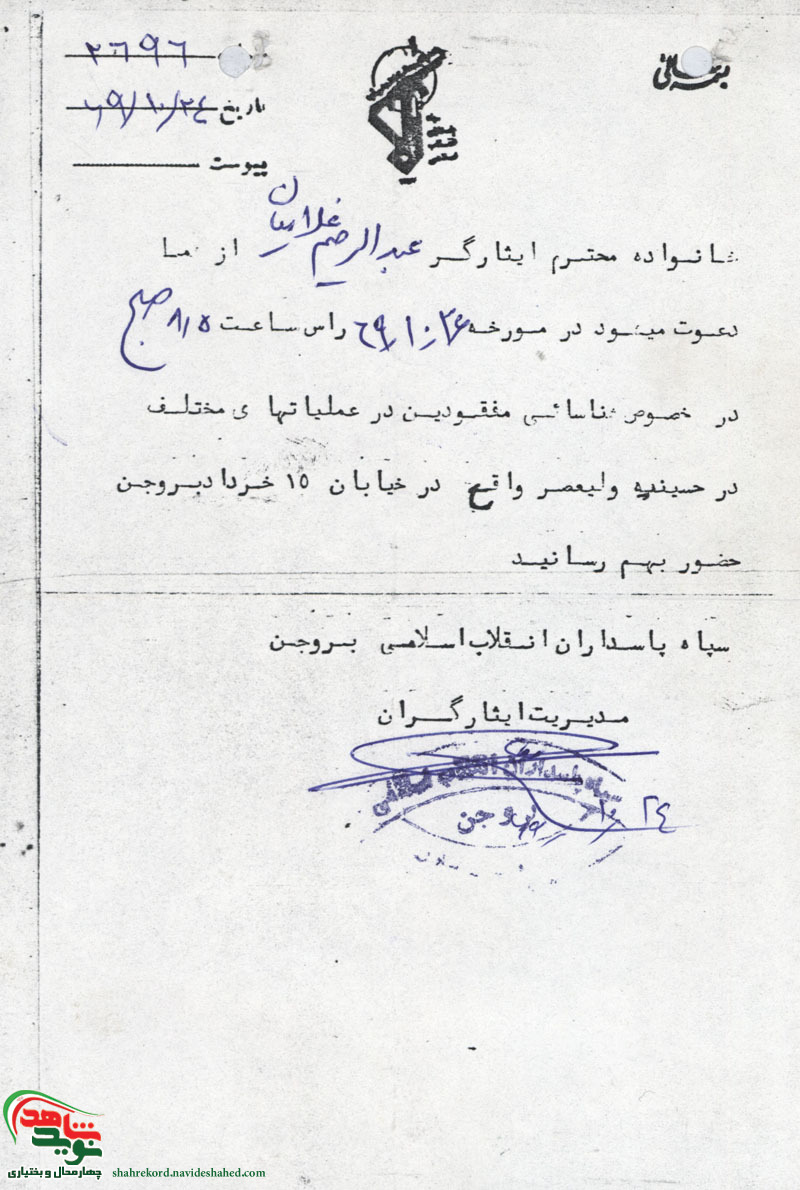 بسمه تعالی
۲۶۹۶
تاریخ ۶۹/۱۰/۲٤
پیوست
خانواده محترم ایثارگر عبدالرحیم غلامیان از شما
دعوت میشود در مورخه ۶۹٫۱۰٫۲۶ راس ساعت ۸٫۵ صبح
در خصوص شناسائی مفقودین در عملیاتهای مختلف
در حسینیه ولیعصر واقع در خیابان ۱۵ خرداد بروجن
حضور بهم رسانید
سپاه پاسداران انقلاب اسلامی بروجن
مدیریت ایثارگران
سپاه پاسداران انقلاب اسلامی
بروجن
۱۰/۲٤
نوید شاهد
چهارمحال و بختیاری
shahrekord.navideshahed.com